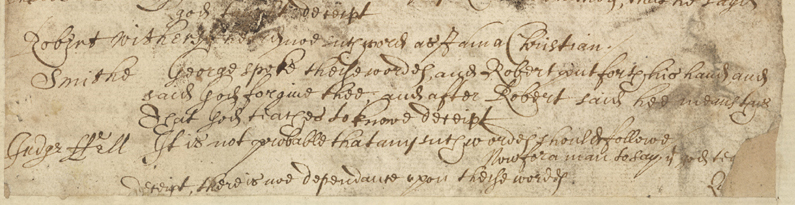 god deceipt
Robert Withers hee knowe such word as I am a Christian.
Smithe George spoke these wordes, and Robert put forth his hand and
said god forgive thee and after Robert said hee meant thus
That god teaches to knowe deceipt
Judge ffell It is not probable that any such wordes should followe
Now for a man to say
deceipt, there is noe dependance upon these wordes.